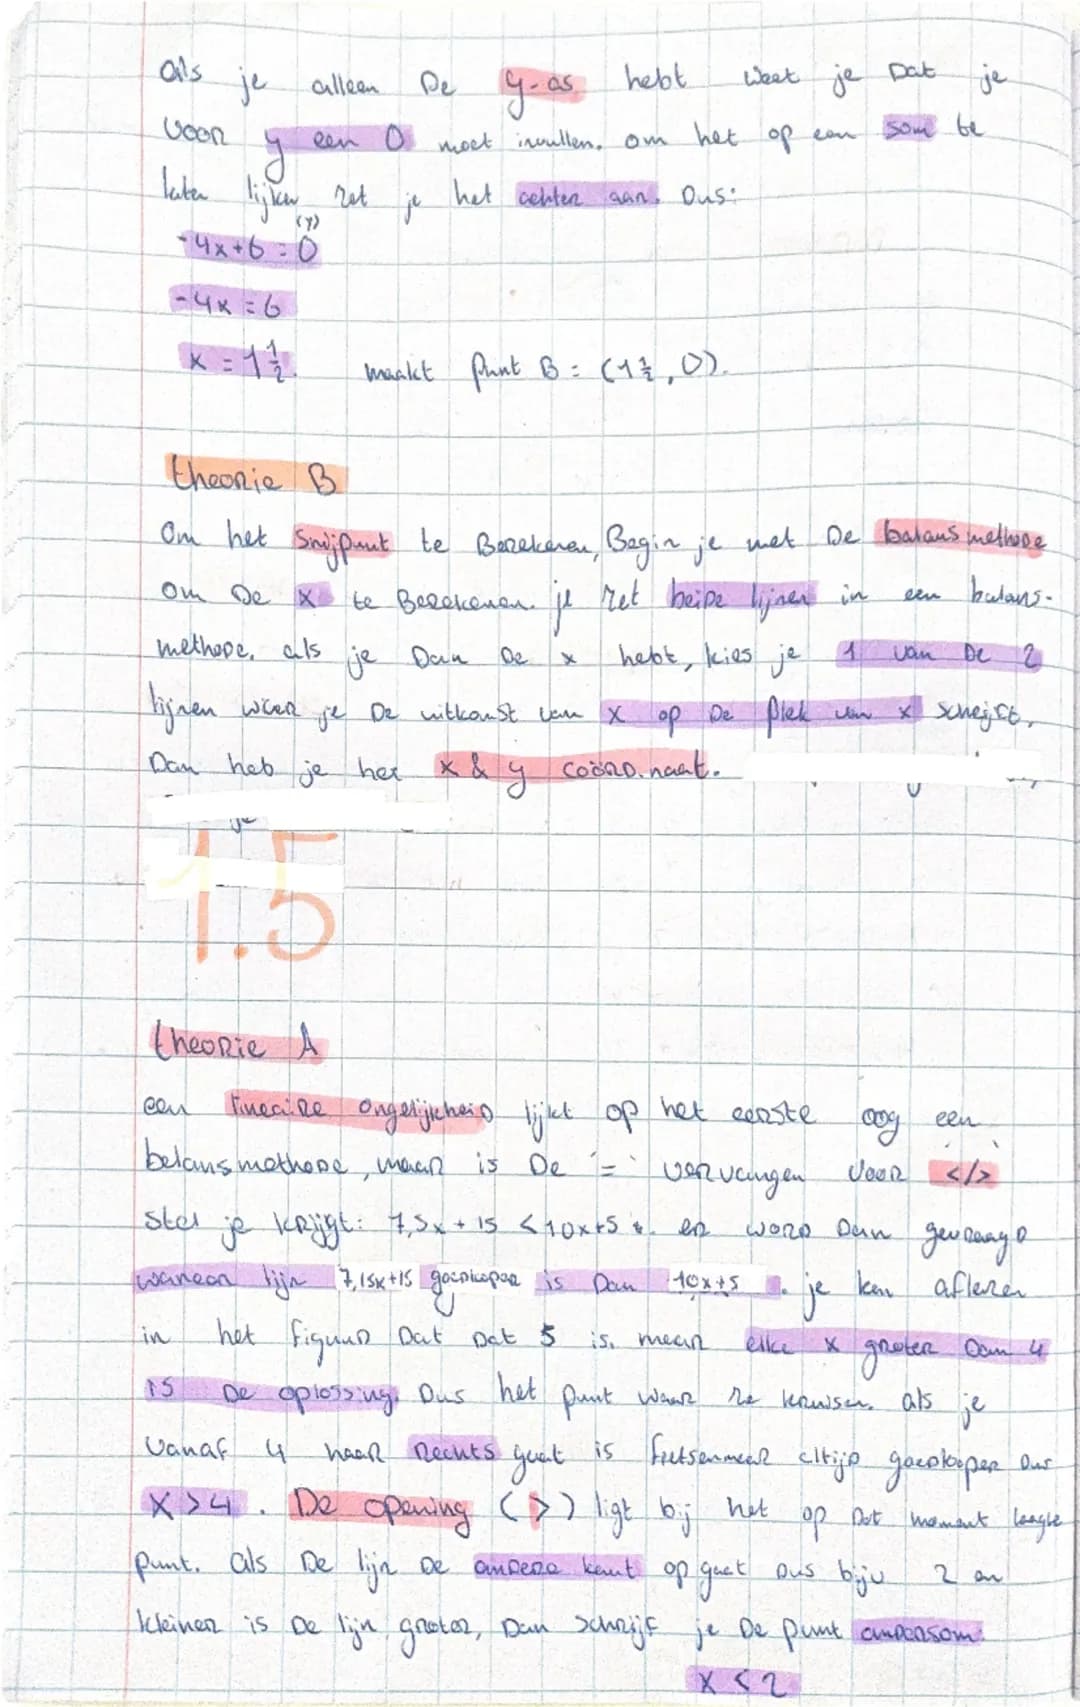 als je alleen De y-as hebt weet je Dat je
voor y een 0 moet invullen. om het op een som te
laten lijken zet je het achter aan. Dus:
(y)
-4x+6=0
-4x=6
x=1½. maakt punt B = (1½, 0).
theorie B
Om het snijpunt te Berekenen, Begin je met De balansmethode
om De x te Berekenen. je zet beide lijnen in een balans-
methode. als je Dan De x hebt, kies je 1 van De 2
lijnen waar je De uitkomst van x op De plek van x schrijft.
Dan heb je het x & y coörd.naat.
je
1.5
theorie A
een lineaire ongelijkheid lijkt op het eerste oog een
balansmethode, maar is De '=' vervangen door </>
Stel je krijgt: 7,5x + 15 < 10x+5. en word Dan gevraagd
wanneer lijn 7,15x+15 goedkoper is Dan 10x+5. je kan aflezen
in het figuur Dat Dat 5 is. maar elke x groter Dan 4
is De oplossing. Dus het punt waar ze kruisen. als je
vanaf 4 naar Rechts gaat is fietsenmeer altijd goedkoper Dus
x>4. De opening (>) ligt bij het op Dat moment laagste
punt. als De lijn De andere kant op gaat Dus bijv 2 en
kleiner is De lijn groter, Dan schrijf je De punt andersom.
x<2